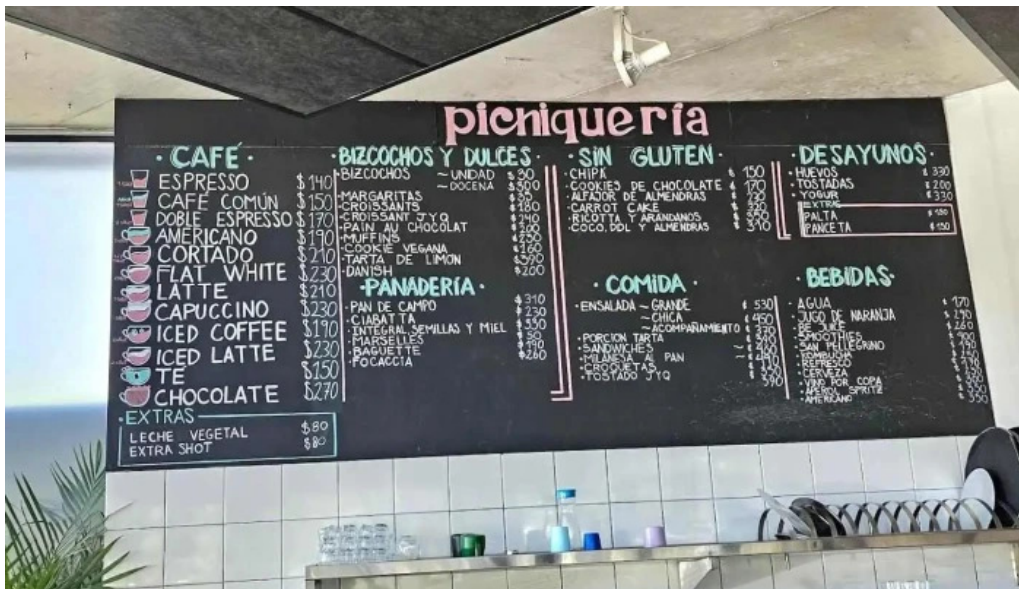 picniquería
·CAFÉ·
ESPRESSO $140
CAFÉ COMÚN $150
DOBLE ESPRESSO $170
AMERICANO $190
CORTADO $210
FLAT WHITE $230
LATTE $210
CAPUCCINO $230
ICED COFFEE $190
ICED LATTE $230
TÉ $150
CHOCOLATE $270
·EXTRAS
LECHE VEGETAL $80
EXTRA SHOT $80
·BIZCOCHOS Y DULCES·
·BIZCOCHOS ~UNIDAD $30
~DOCENA $300
·MARGARITAS
·CROISSANTS $180
·CROISSANT JYQ $240
·PAIN AU CHOCOLAT
·MUFFINS
·COOKIE VEGANA $160
·TARTA DE LIMÓN $390
·DANISH $200
·PANADERÍA·
·PAN DE CAMPO $310
·CIABATTA $230
·INTEGRAL, SEMILLAS Y MIEL $330
·MARSELLES
·BAGUETTE $190
·FOCACCIA $260
·SIN GLUTEN·
·CHIPÁ $150
·COOKIES DE CHOCOLATE $170
·ALFAJOR DE ALMENDRAS
·CARROT CAKE
·RICOTTA Y ARÁNDANOS
·COCO, DDL Y ALMENDRAS $310
·COMIDA·
·ENSALADA ~ GRANDE $530
~ CHICA $450
~ ACOMPAÑAMIENTO
·PORCIÓN TARTA
·SANDWICHES
·MILANESA AL PAN
·CROQUETAS
·TOSTADO JYQ 390
·DESAYUNOS·
·HUEVOS $330
·TOSTADAS $200
·YOGUR $330
EXTRAS
PALTA $130
PANCETA $130
·BEBIDAS·
·AGUA $170
·JUGO DE NARANJA $290
·BE JUICE $260
·SMOOTHIES
·SAN PELLEGRINO
·KOMBUCHA
·REFRESCO
·CERVEZA
·VINO POR COPA
·APEROL SPRITZ
·AMERICANO 350